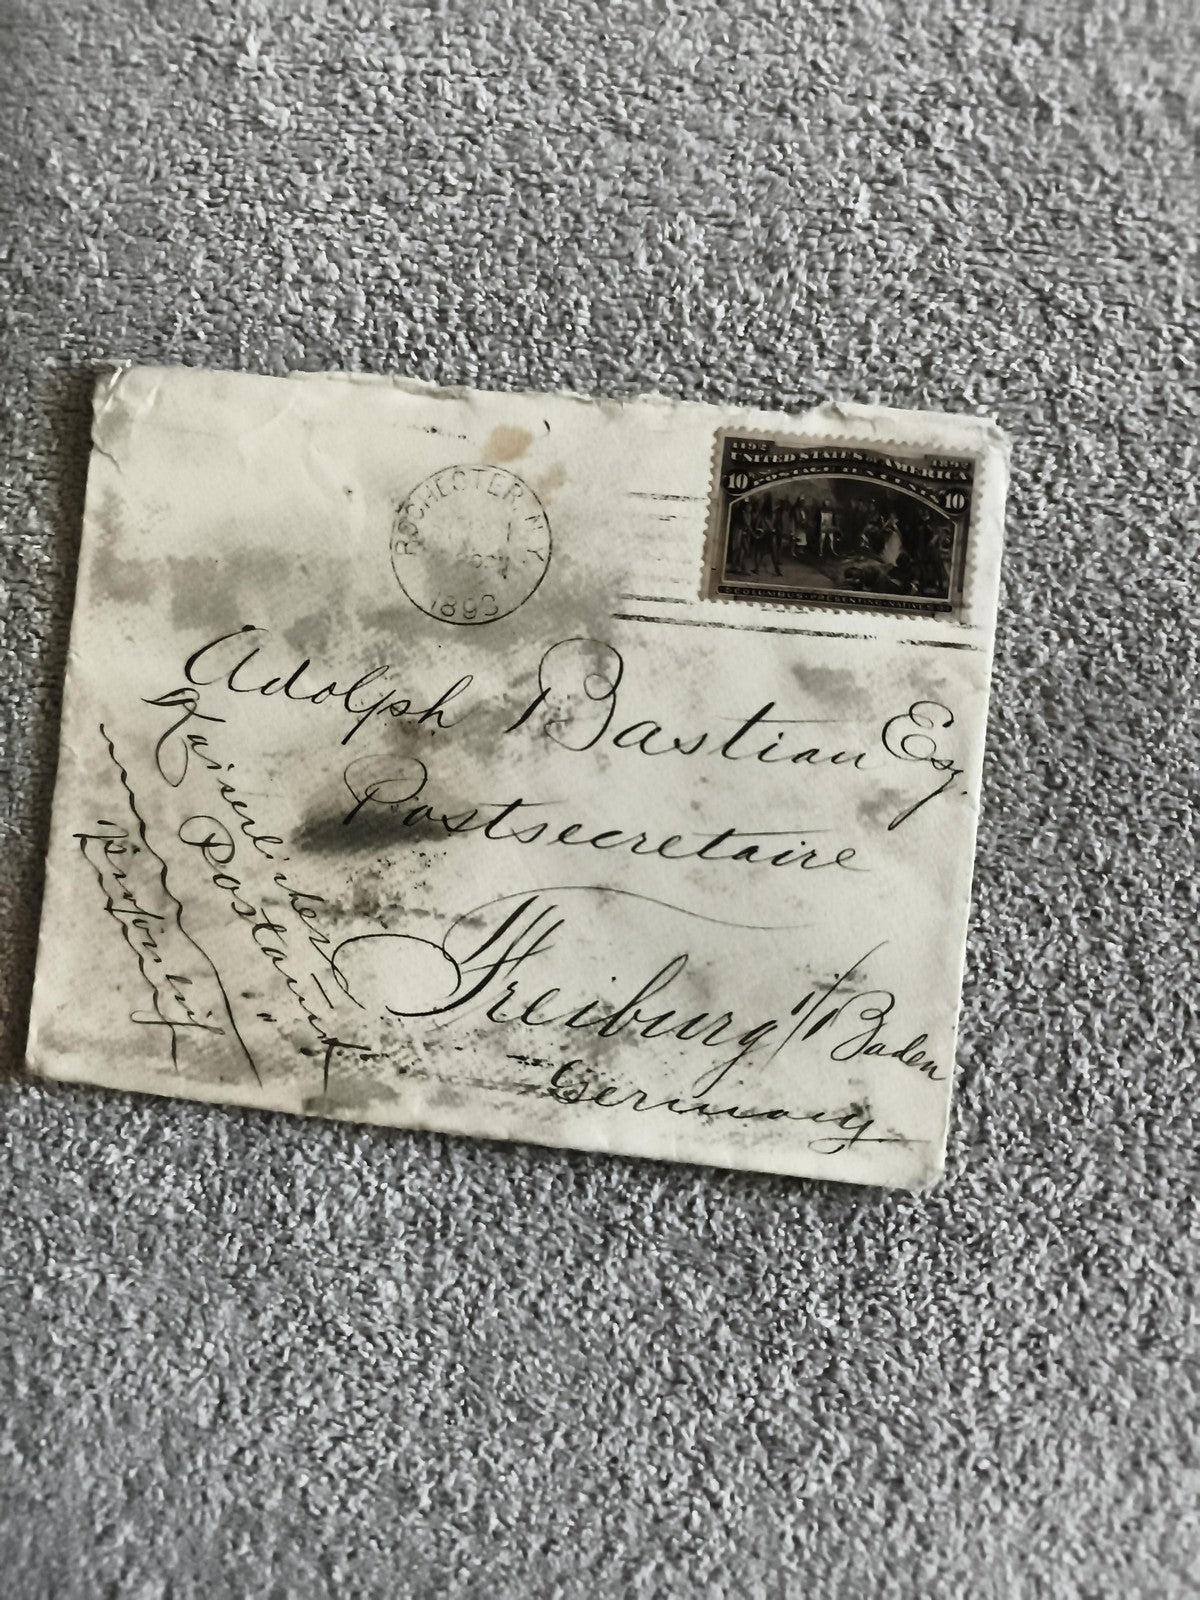 ROCHESTER N.Y.
1893
1492 1892
UNITED STATES OF AMERICA
POSTAGE TEN CENTS
10 10
COLUMBUS PRESENTING NATIVES
Adolph Bastian Esq.
Postsecretaire
Freiburg i/Baden
Germany
Kaiserliches
Postamt